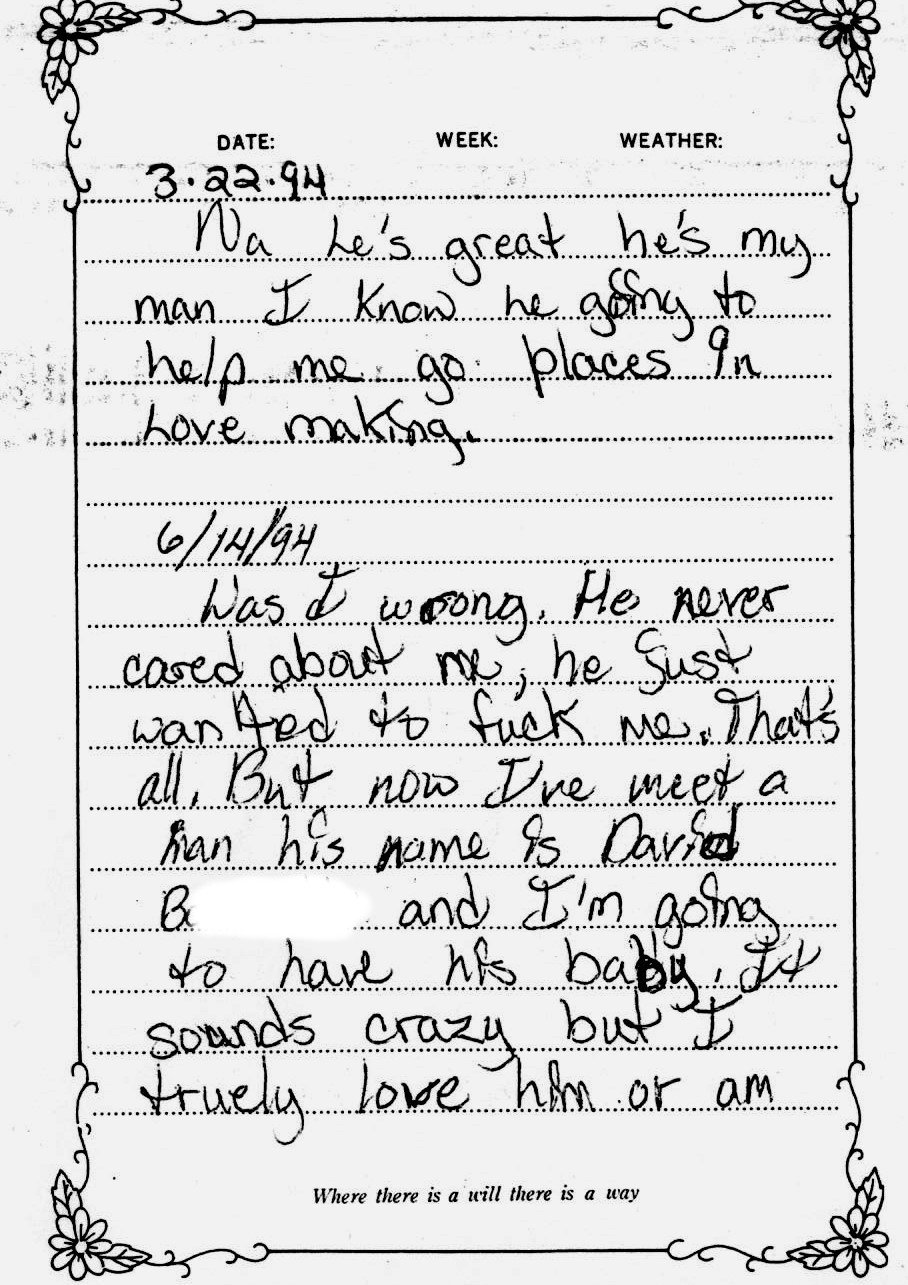 DATE: WEEK: WEATHER:
3.22.94
Na he's great he's my
man I know he going to
help me go places in
Love making.
6/14/94
Was I wrong. He never
cared about me, he just
wanted to fuck me. That's
all. But now I've meet a
man his name is David
B and I'm going
to have his baby. It
sounds crazy but I
truely love him or am
Where there is a will there is a way